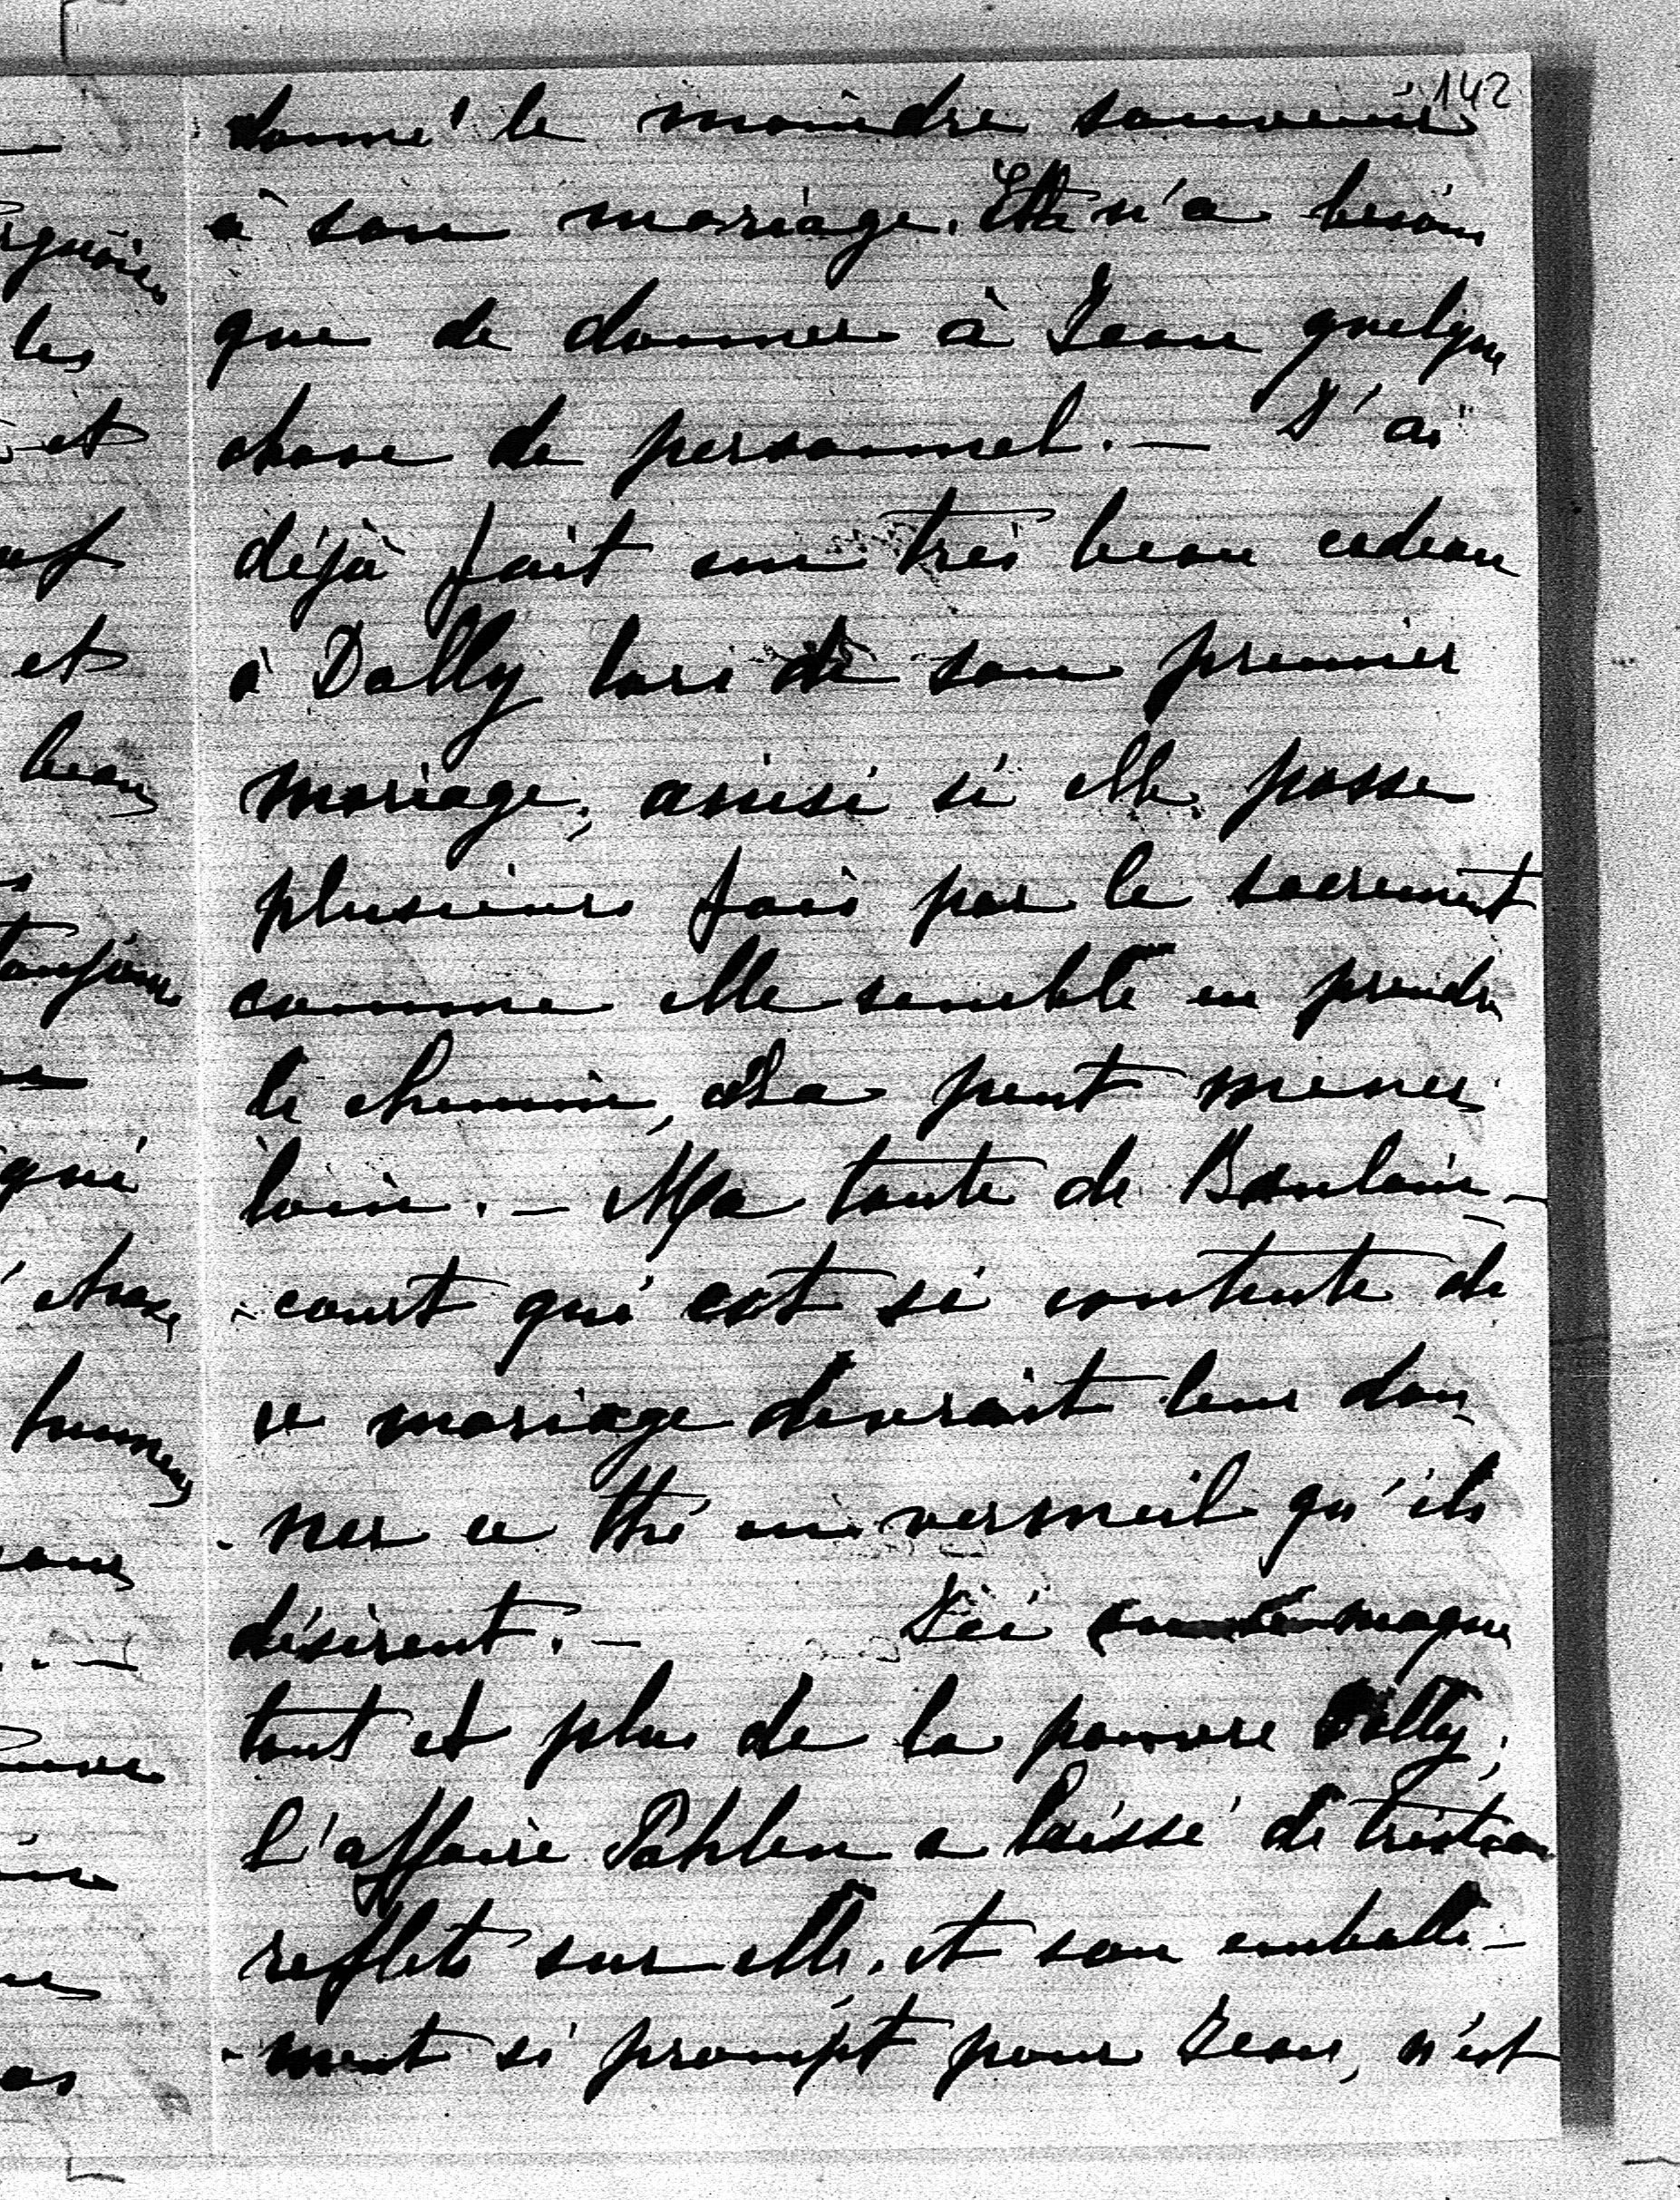 142
donné le moindre souvenir
à son mariage. Etta n'a besoin
que de donner à Jean quelque
chose de personnel. — J'ai
déjà fait un très beau cadeau
à Dolly lors de son premier
mariage; ainsi si elle passe
plusieurs fois par le sacrement
comme elle semble en prendre
le chemin, cela peut mener
loin. — Ma tante de Boulain-
- court qui est si contente de
ce mariage devrait leur don
- ner ce thé en vermeil qu'ils
désirent. — Ici on se moque
tout et plus de la pauvre Dolly;
L'affaire Pahlen a laissé de tristes
reflets sur elle, et son emballe-
- ment si prompt pour Jean, n'est
les
et
et
beau
toujours
qui
chose